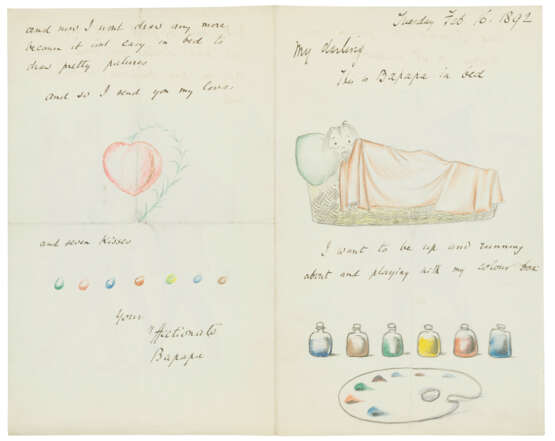 Tuesday Feb 16. 1892
My darling
This is Bapapa in bed
I want to be up and running
about and playing with my colour box
and now I wont draw any more
because it isnt easy in bed to
draw pretty pictures
and so I send you my love.
and seven kisses
Your
affectionate
Bapapa